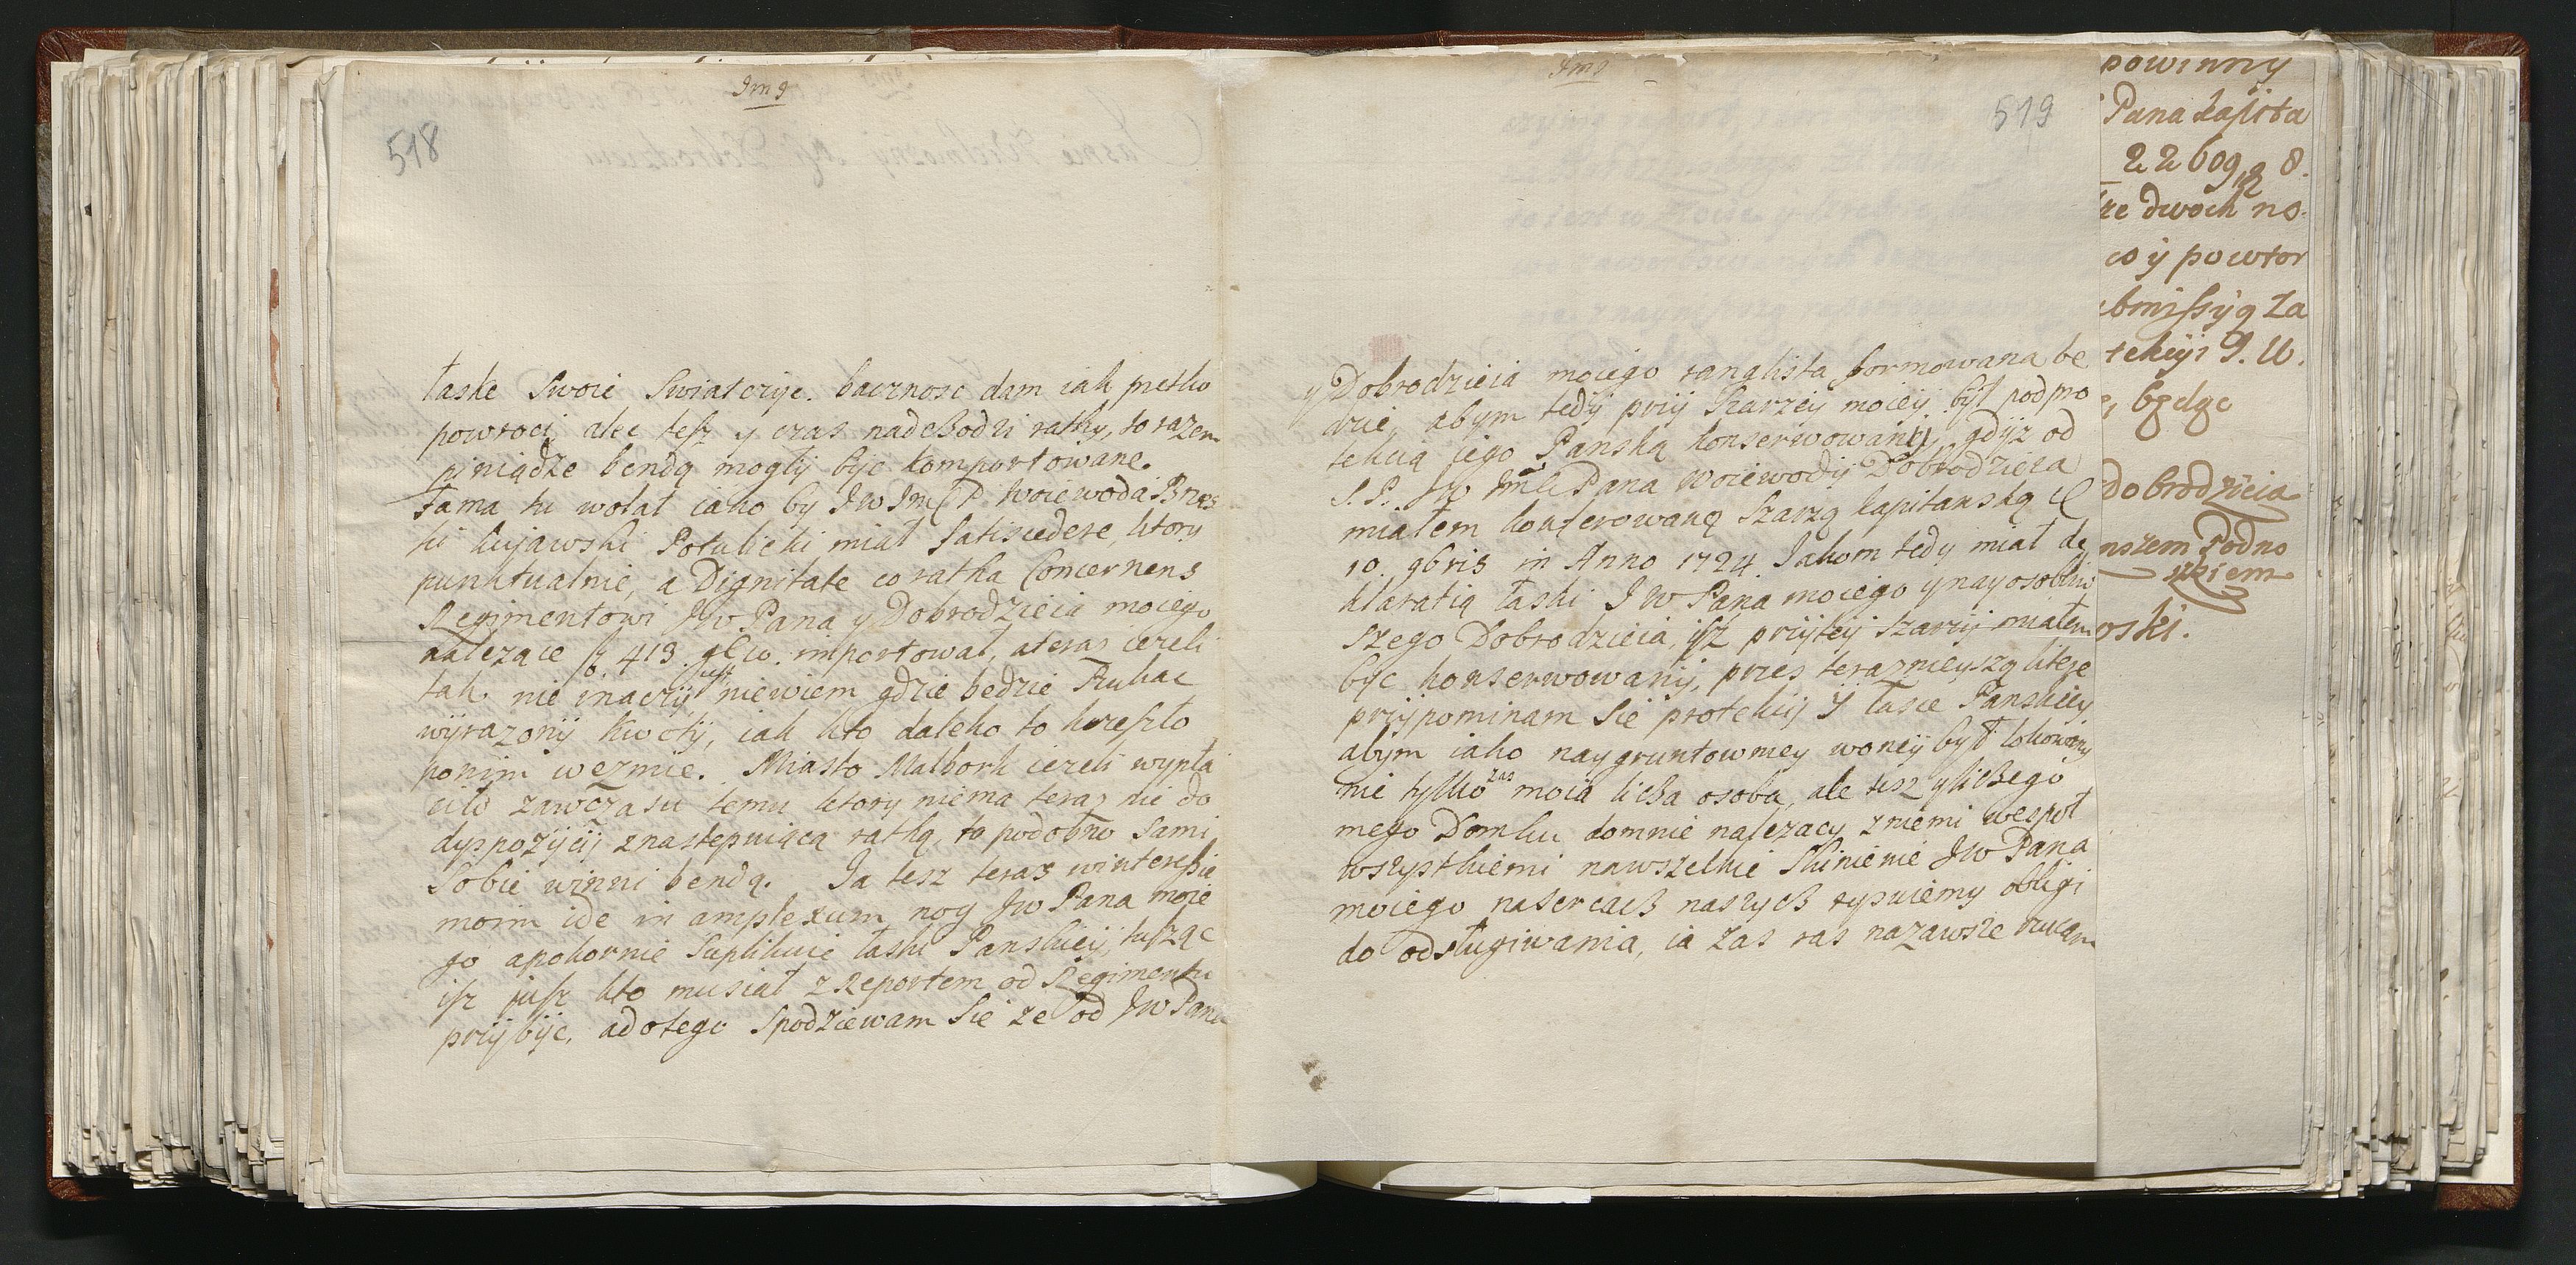 Im͠g
518
łaske Swoie Swiatczye. baczność dam iak prętko
powroci alec tesz y czas nadeßodzi ratky, to razem
piniądze bendą mogłÿ bÿc komportowane.
Fama tu wolat iako by JW Im͠c P. Woiewoda Brzes
ki kujawski Potulicki miał Satiscedere, ktory
punktualnie, a Dignitate co ratka Concernens
Regimentowi JW Pana y Dobrodzieia moiego
należące f. 413 importował, a teraz iezeli
tak. nie inaczÿ jusz niewiem gdzie bedzie Szukac
wÿrazonÿ kwotÿ, iak kto daleko to kreszto
ponim wezmie. Miasto Malbork iezeli wypła
ciło zawczasu temu ktory niema teraz nic do
dyspozÿcÿi znastepuiącą ratką, to podobno Sami
Sobie winni bendą. Ja tesz teraz winteressie
moim ide in amplexum nog JW Pana moie
go apokornie Suplikuie łaski Panskieÿ, tusząc
isz jusz kto musiał z Reportem od Regimentu
przÿbÿc. adotego Spodziewam Sie ze od JW Pana
Im͠g
519
y Dobrodzieia moiego ranglista formowana be
dzie, abym tedÿ przÿ Szarzeÿ moieÿ był pod pro
tekcią iego Panską konserwowanÿ, gdÿz od
S. P. JW Im͠ci Pana Woiewodÿ Dobrodzieia
miałem konferowaną Szarzą kapitanską d
10. 9bris in Anno 1724. Jakom tedy miał de
klaratią łaski J W Pana moiego y nayosobliw
szego Dobrodzieia, isz przÿteÿ Szarzÿ miałem
bÿc konserwowanÿ, przes terazniejszą litere
przÿpominam Sie protekcÿ Y łasce Panskieÿ
abym iako naygruntowniey woneÿ był lokowanÿ
nie tylko zas moia licßa osoba, ale tesz y licßego
mego Domku domnie nalezacy zniemi wespoł
wszystkiemi nawszelkie Skinienie JW Pana
moiego nasercacß naszycß rysuiemy obligi
do odsługiwania, ia zas ras nazawsze rzucam
powinny
Pana kapita
22609 8.
ze dwoch no
co ÿ powtor
bmissÿą Za
tekcÿi J. W.
będąc
Dobrodzieia
nszem Podno
zkiem
oski.